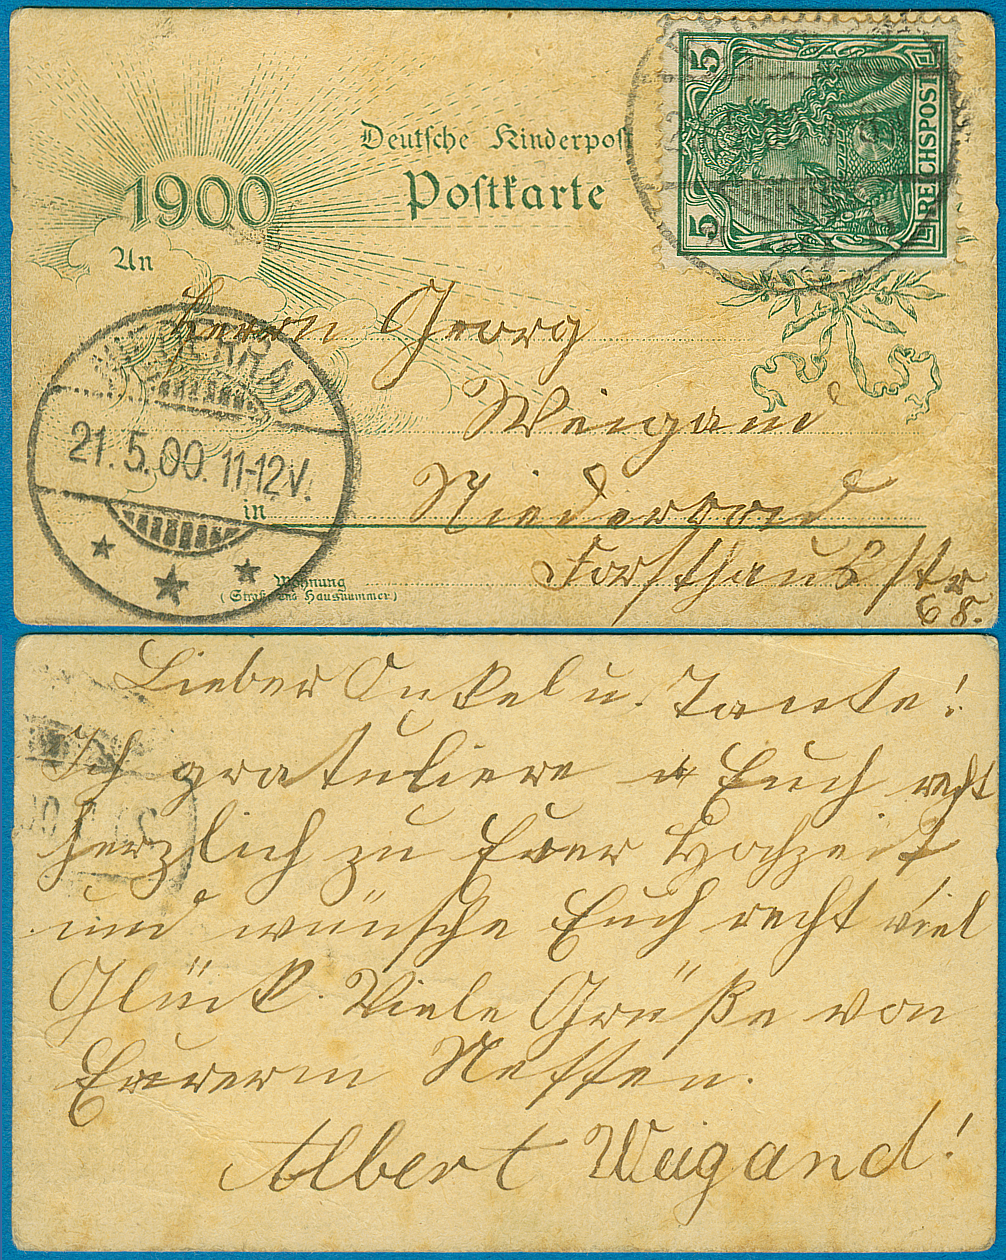 Deutsche Kinderpost
Postkarte
1900
5
5
REICHSPOST
An
Herrn Georg
Weigand
NIEDERRAD
21.5.00. 11-12V.
in
Niederrad
Wohnung
(Straße und Hausnummer)
Forsthausstr
68.
Lieber Onkel u. Tante!
Ich gratuliere Euch recht
herzlich zu Eurer Hochzeit
und wünsche Euch recht viel
Glück. Viele Grüße von
Eurerm Neffen.
Albert Weigand!